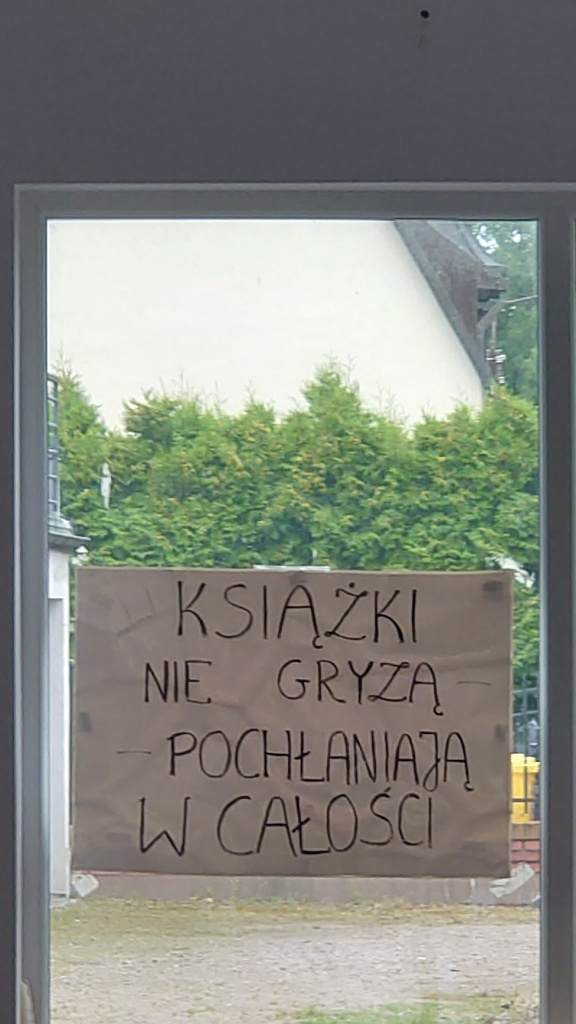 KSIĄŻKI
NIE GRYZĄ -
- POCHŁANIAJĄ
W CAŁOŚCI